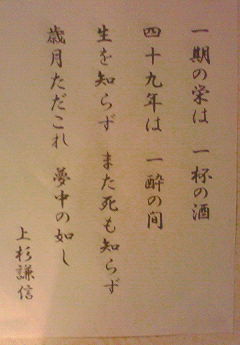 一期の栄は 一杯の酒
四十九年は 一酔の間
生を知らず また死も知らず
歳月ただこれ 夢中の如し
上杉謙信